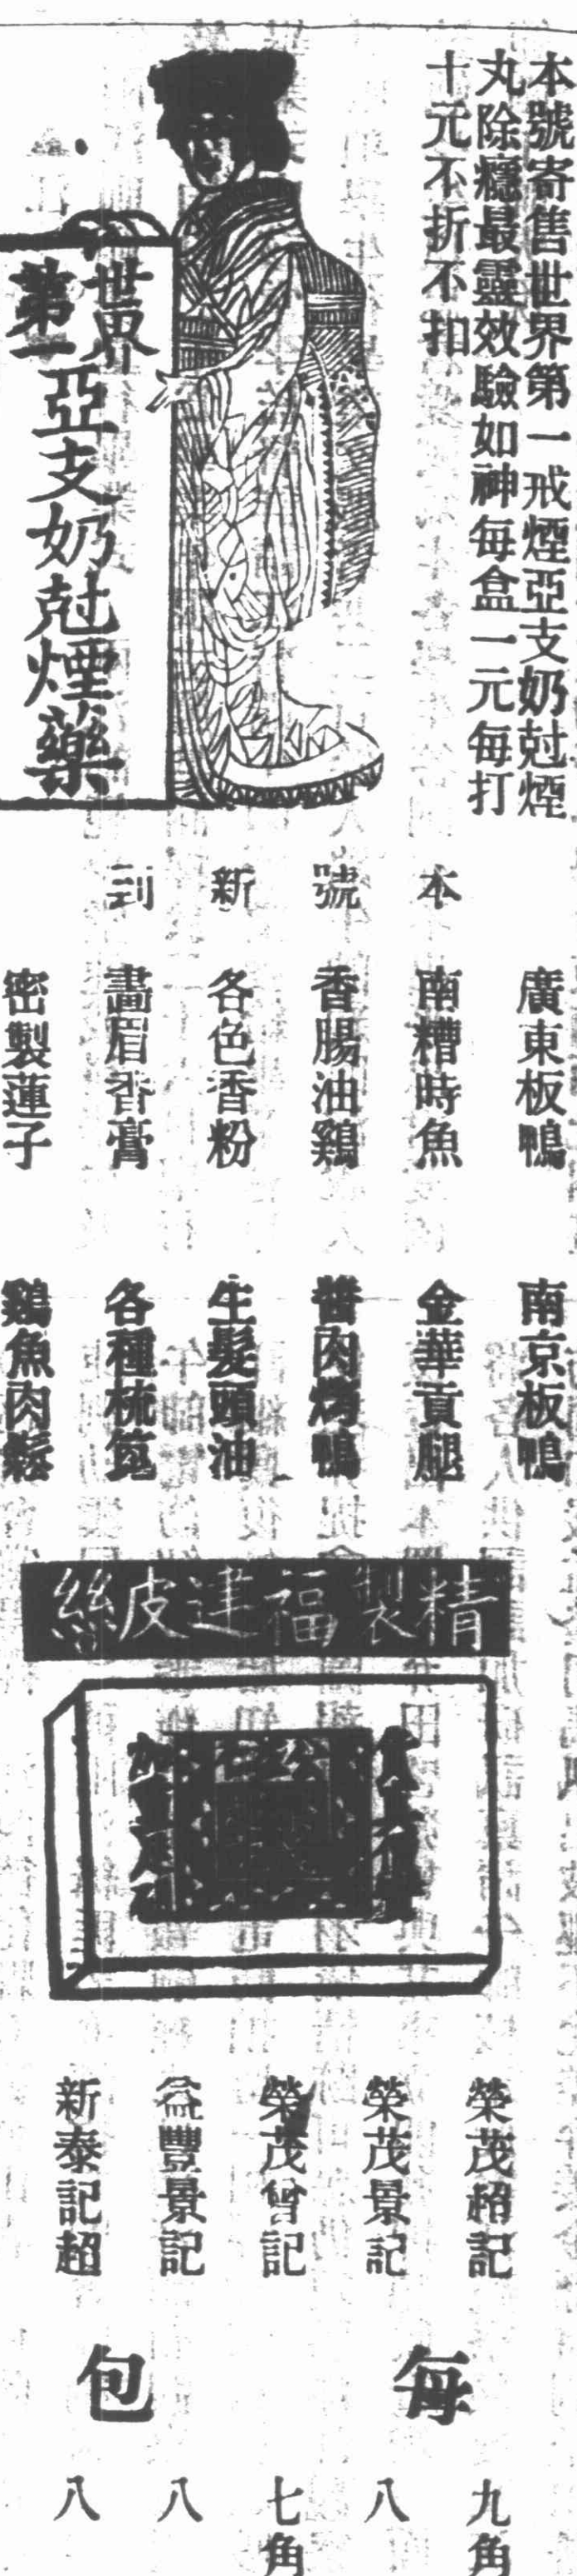 本號寄售世界第一戒煙亞支奶尅煙
丸除癮最靈效驗如神每盒一元每打
十元不折不扣
世界
第一
亞支奶尅煙藥
本號新到
廣東板鴨
南糟時魚
香腸油鷄
各色香粉
畵眉香膏
密製蓮子
南京板鴨
金華貢腿
醬肉燒鴨
生髮頭油
各種梳篦
鷄魚肉鬆
精製福建皮絲
榮茂超記
榮茂景記
榮茂曾記
益豐景記
新泰記超
每包
九角
八
七角
八
八